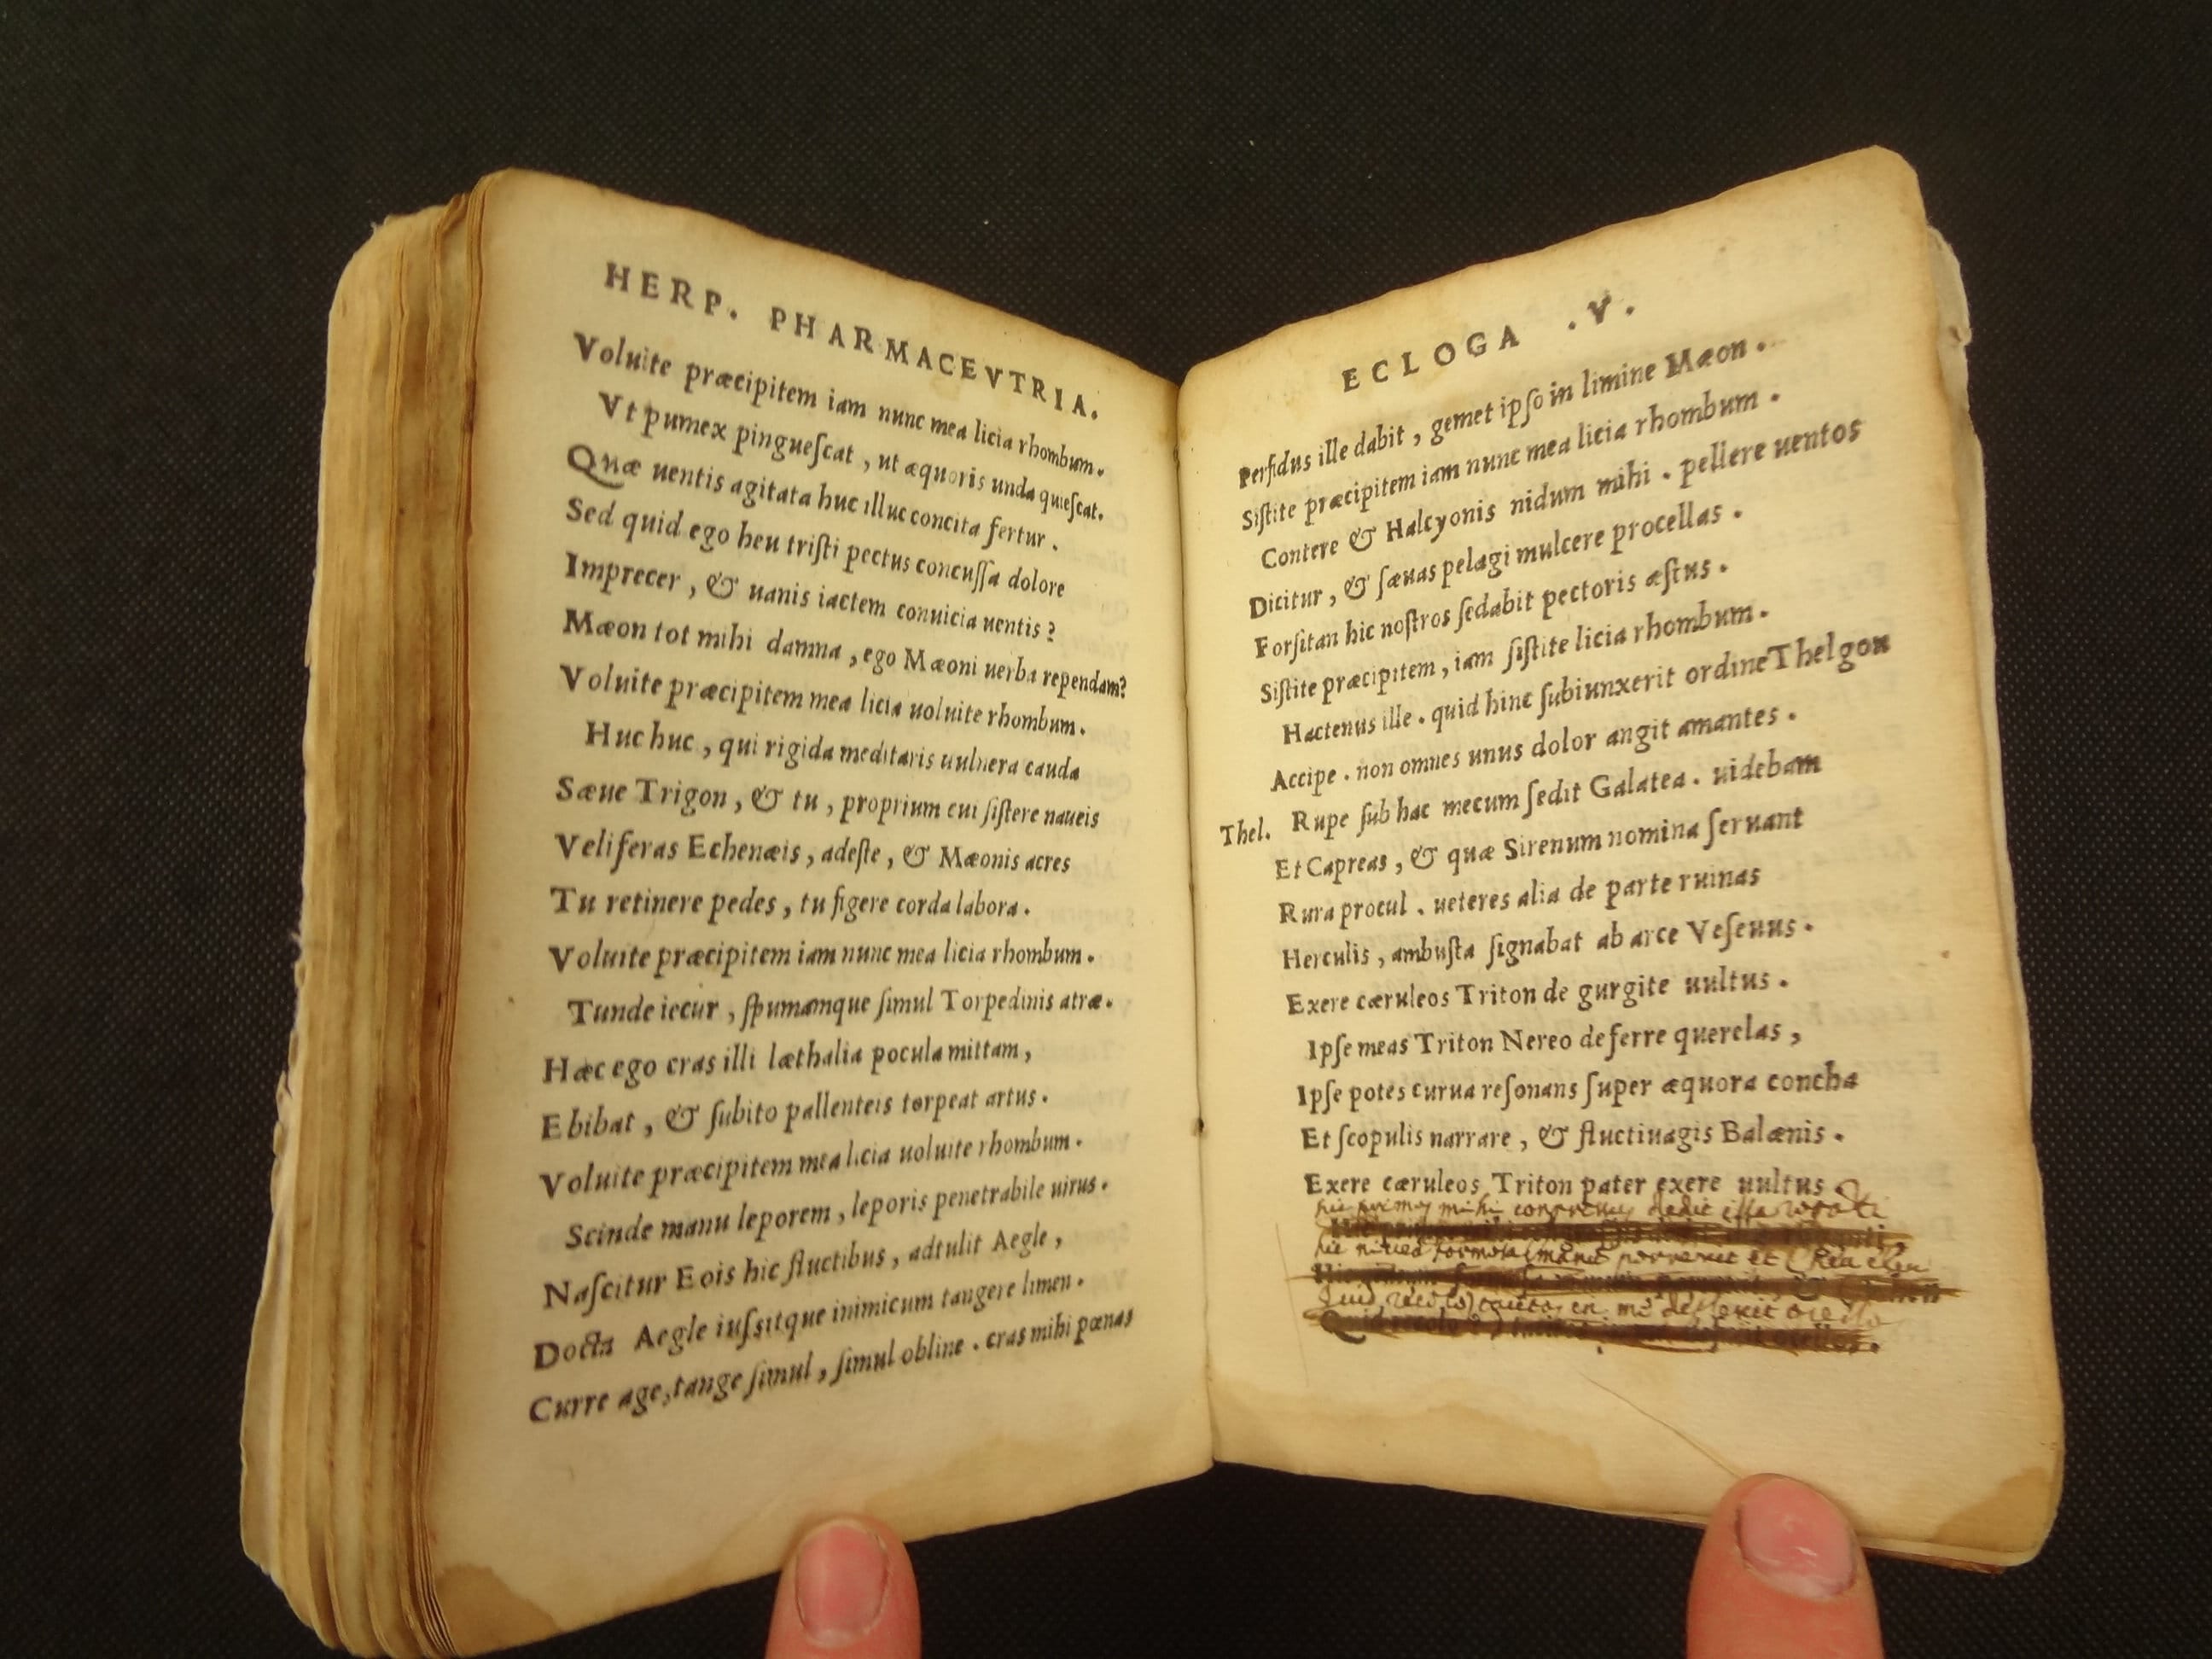 HERP. PHARMACEVTRIA.
Voluite præcipitem iam nunc mea licia rhombum.
Vt pumex pingueſcat, ut æquoris unda quieſcat.
Quæ uentis agitata huc illuc concita fertur.
Sed quid ego heu triſti pectus concuſſa dolore
Imprecer, & uanis iactem conuicia uentis?
Mæon tot mihi damna, ego Mæoni uerba rependam?
Voluite præcipitem mea licia uoluite rhombum.
Huc huc, qui rigida meditaris uulnera cauda
Sæue Trigon, & tu, proprium cui ſiſtere naueis
Veliferas Echenæis, adeſte, & Mæonis acres
Tu retinere pedes, tu figere corda labora.
Voluite præcipitem iam nunc mea licia rhombum.
Tunde iecur, ſpumamque ſimul Torpedinis atræ.
Hæc ego cras illi læthalia pocula mittam,
Ebibat, & ſubito pallenteis torpeat artus.
Voluite præcipitem mea licia uoluite rhombum.
Scinde manu leporem, leporis penetrabile uirus.
Naſcitur Eois hic fluctibus, adtulit Aegle,
Docta Aegle iuſsitque inimicum tangere limen.
Curre age, tange ſimul, ſimul obline. cras mihi pœnas
ECLOGA .V.
Perfidus ille dabit, gemet ipſo in limine Mæon.
Siſtite præcipitem iam nunc mea licia rhombum.
Contere & Halcyonis nidum mihi. pellere uentos
Dicitur, & ſæuas pelagi mulcere procellas.
Forſitan hic noſtros ſedabit pectoris æſtus.
Siſtite præcipitem, iam ſiſtite licia rhombum.
Hactenus ille. quid hinc ſubiunxerit ordine Thelgon
Accipe. non omnes unus dolor angit amantes.
Thel. Rupe ſub hac mecum ſedit Galatea. uidebam
Et Capreas, & quæ Sirenum nomina ſeruant
Rura procul. ueteres alia de parte ruinas
Herculis, ambuſta ſignabat ab arce Veſeuus.
Exere cæruleos Triton de gurgite uultus.
Ipſe meas Triton Nereo deferre querelas,
Ipſe potes curua reſonans ſuper æquora concha
Et ſcopulis narrare, & fluctiuagis Balænis.
Exere cæruleos Triton pater exere uultus.
mihi dedit illa
formosa manus et